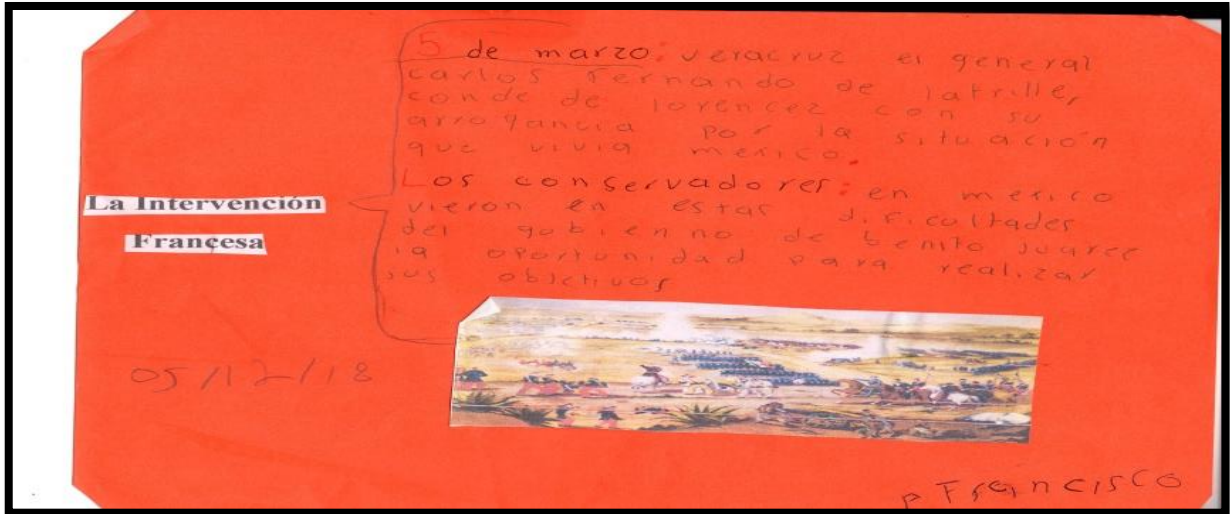 La Intervención
Francesa
5 de marzo: veracruz el general
carlos Fernando de latrille,
conde de lorencez con su
arrogancia por la situación
que vivia mexico.
Los conservadores: en mexico
vieron en estas dificultades
del gobienno de benito juarez
la oportunidad para realizar
sus objetivos
05/12/18
Francisco